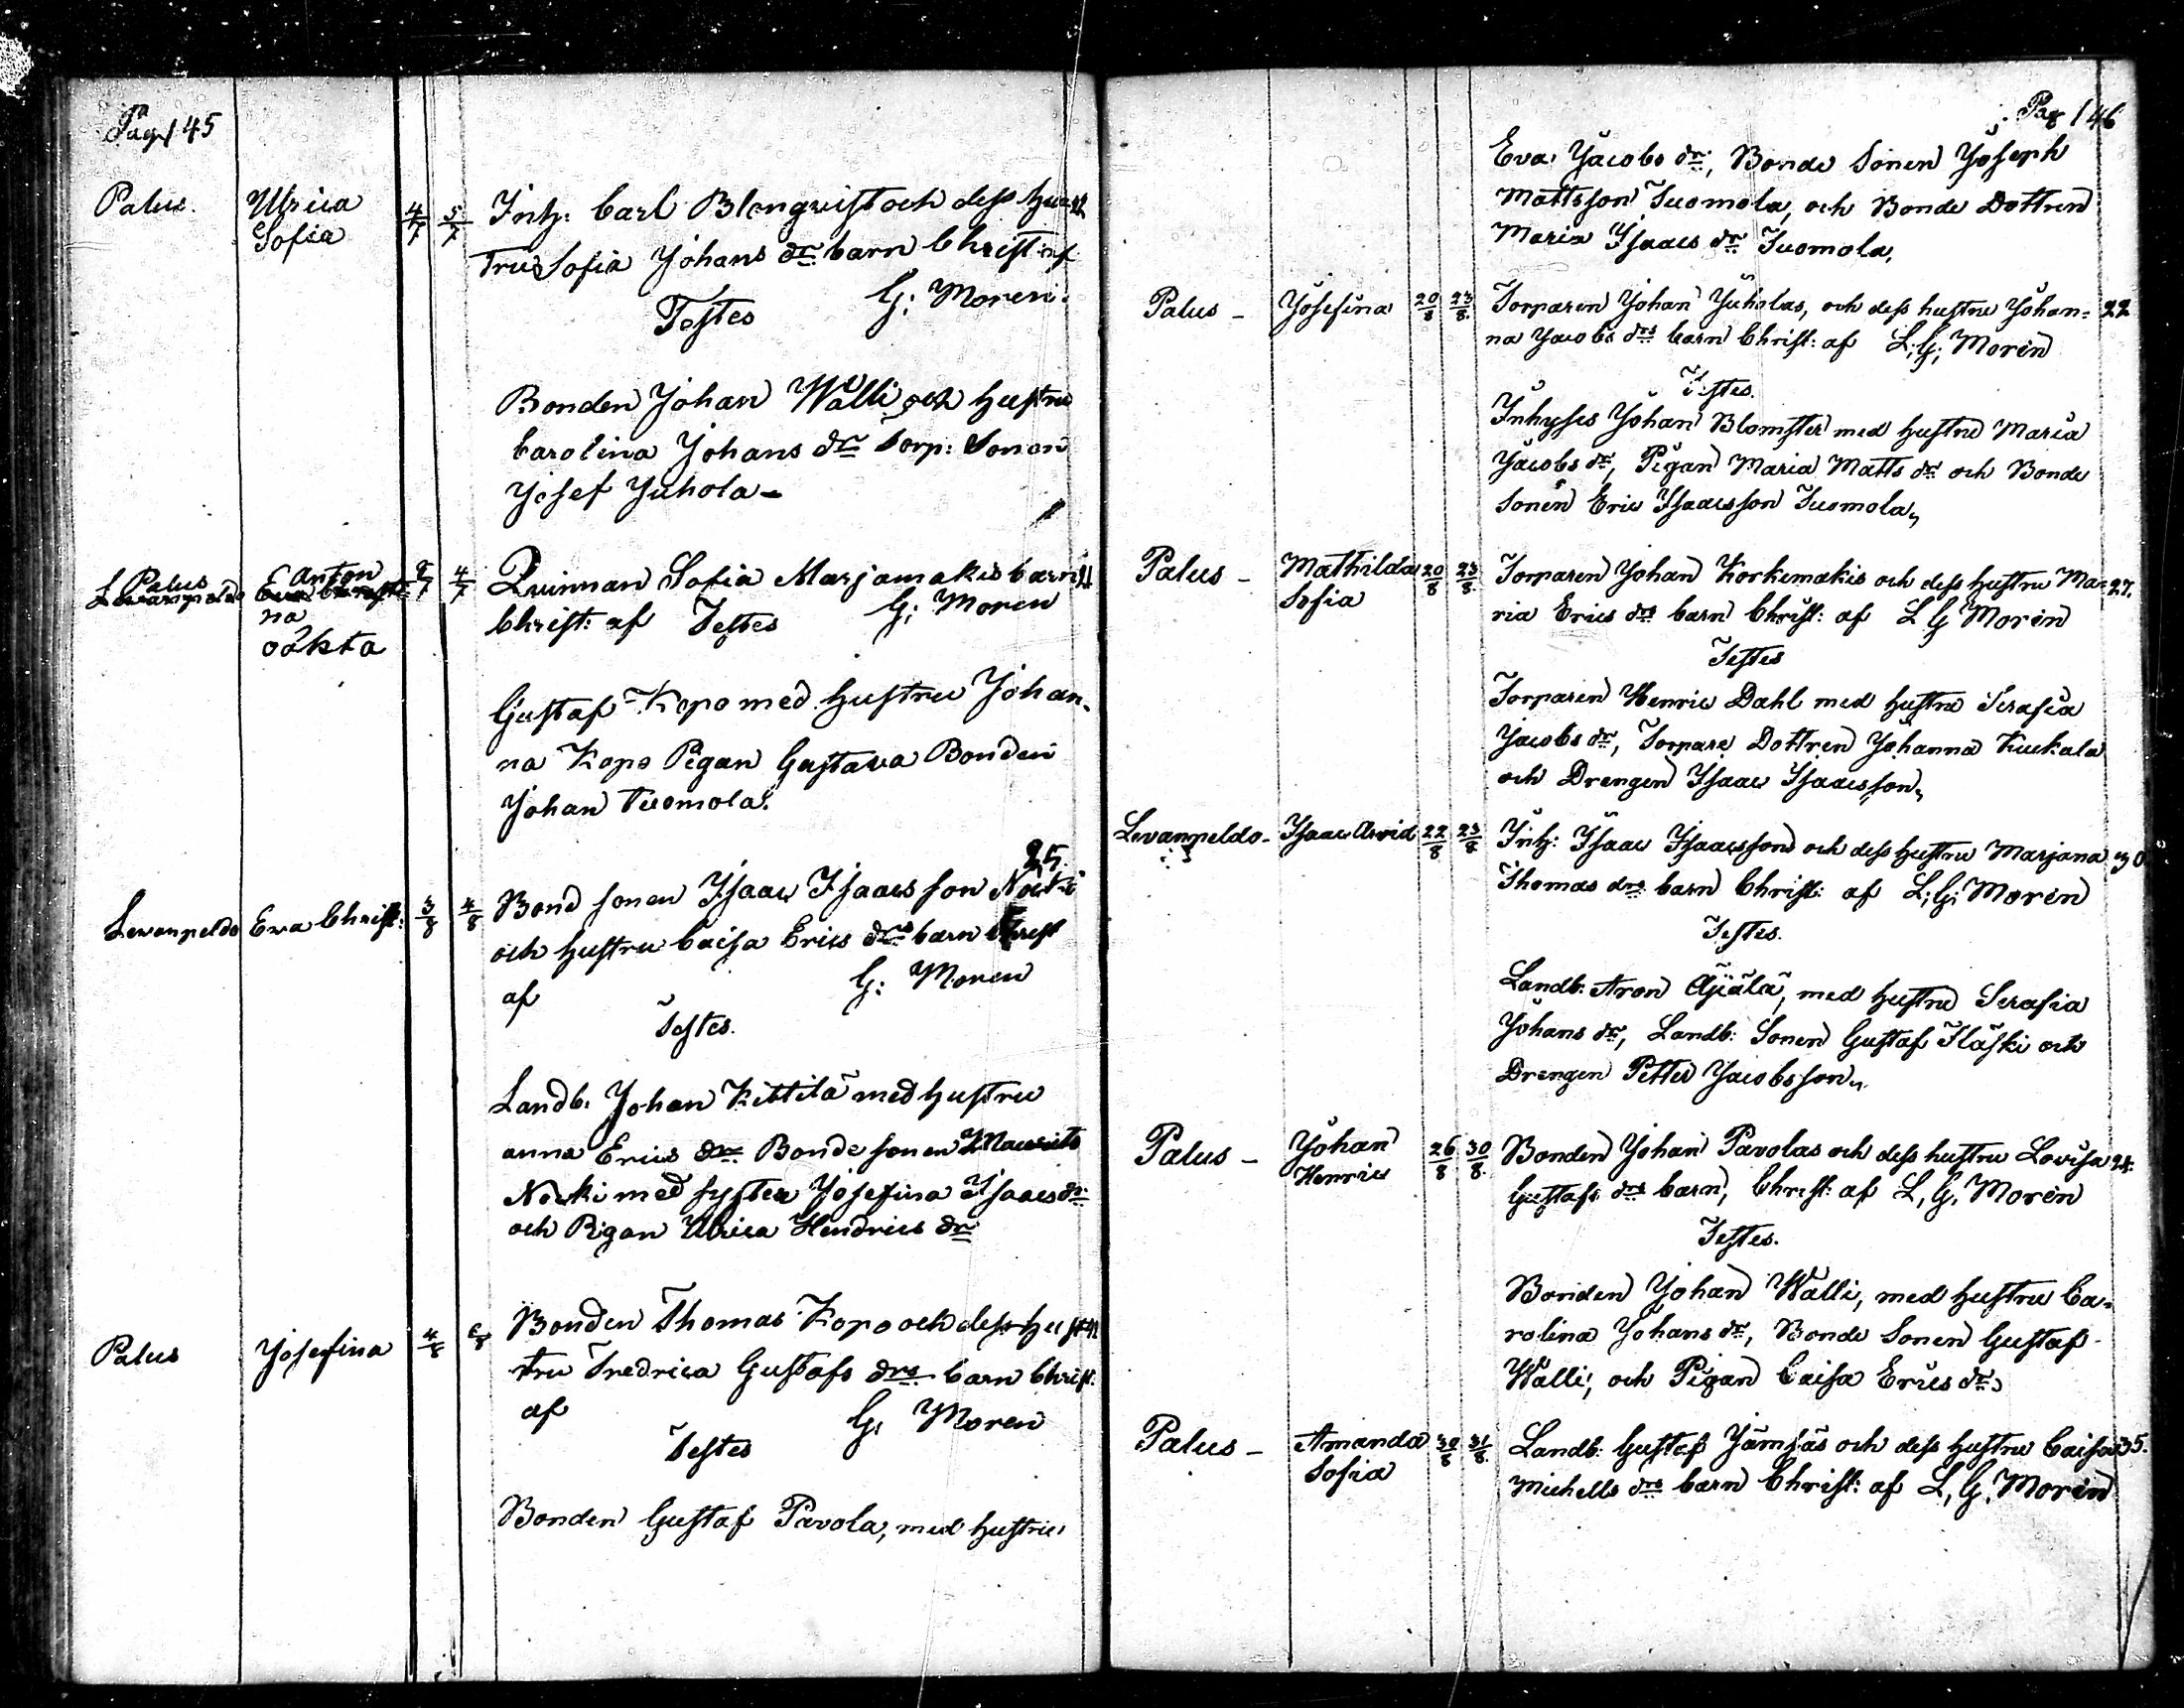 Pag 145
Palus. Ulrica Sofia 4/7 5/7 Inh: Carl Blomqvist och dess hus-
tru Sofia Johans dr barn Christ af
Testes G: Moren.
Bonden Johan Wälli och hustru
Carolina Johans dr Torp: Sonen
Josef Juhola
Palus Anton 4/7 Quinnan Sofia Marjamäkis barn
na
oäkta
Christ: af Testes G: Moren
Gustaf Kopo med hustru Johan-
na Kopo Pigan Gustava Bonden
Johan Tuomola.
25.
Levanpeldo Eva Christ: 3/8 4/8 Bond sonen Isaac Isaacs son Nocki
och hustru Caisa Erics drs barn Christ
af G: Moren
Testes.
Landb: Johan Kittilä med hustru
anna Erics dr Bonde sonen Maurits
Nocki med syster Josefina Isaacs dr
och Pigan Ulrica Hendrics dr
Palus Josefina 4/8 6/8 Bonden Thomas Kopo och dess hus-
tru Fredrica Gustafs drs barn Christ.
af G: Moren
Testes
Bonden Gustaf Pavola, med hustru
Pag 146
Eva Jacobs dr, Bonde Sonen Joseph
Mattsson Tuomola, och Bonde Dottren
Maria Isaacs dr Tuomola,
Palus - Josefina 20/8 23/8 Torparen Johan Juholas, och dess hustru Johan- 22
na Jacobs drs barn Christ: af L: G: Morén
Testes.
Inhyses Johan Blomster med hustru Maria
Jacobs dr, Pigan Maria Matts dr och Bonde
Sonen Eric Isaacsson Tuomola,
Palus - Mathilda Sofia 20/8 23/8 Torparen Johan Korkemakis och dess hustru Ma- 27.
ria Erics drs barn Christ: af L G Morén
Testes
Torparen Henric Dahl med hustru Serafia
Jacobs dr, Torpare Dottren Johanna Kuckala
och Drengen Isaac Isaacsson,
Levanpeldo - Isaac Arvid 22/8 23/8 Inh: Isaac Isaacsson och dess hustru Marjana 30
Thomas drs barn Christ: af L: G: Morén
Testes.
Landb: Aron Äijälä, med hustru Serafia
Johans dr, Landb: Sonen Gustaf Fläski och
Drengen Petter Jacobsson,
Palus - Johan Henric 26/8 30/8 Bonden Johan Pavolas och dess hustru Lovisa 24.
Gustafs drs barn, Christ: af L, G, Morén
Testes.
Bonden Johan Wälli, med hustru Ca-
rolina Johans dr, Bonde Sonen Gustaf
Wälli, och Pigan Caisa Erics dr,
Palus - Amanda Sofia 30/8 31/8 Landb: Gustaf Jämsäs och dess hustru Caisa 35.
Michells drs barn Christ: af L, G. Morén